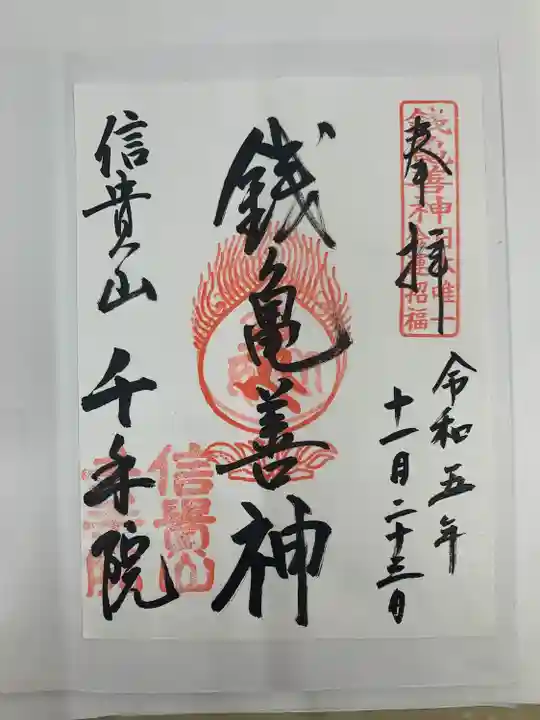 奉拝
錢亀善神日本唯一
金運招福
令和五年
十一月二十三日
銭亀善神
信貴山 千手院
信貴山
千手院